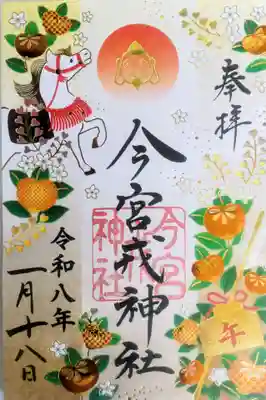 奉拝
今宮戎神社
今宮
神社
令和八年
一月十八日
午